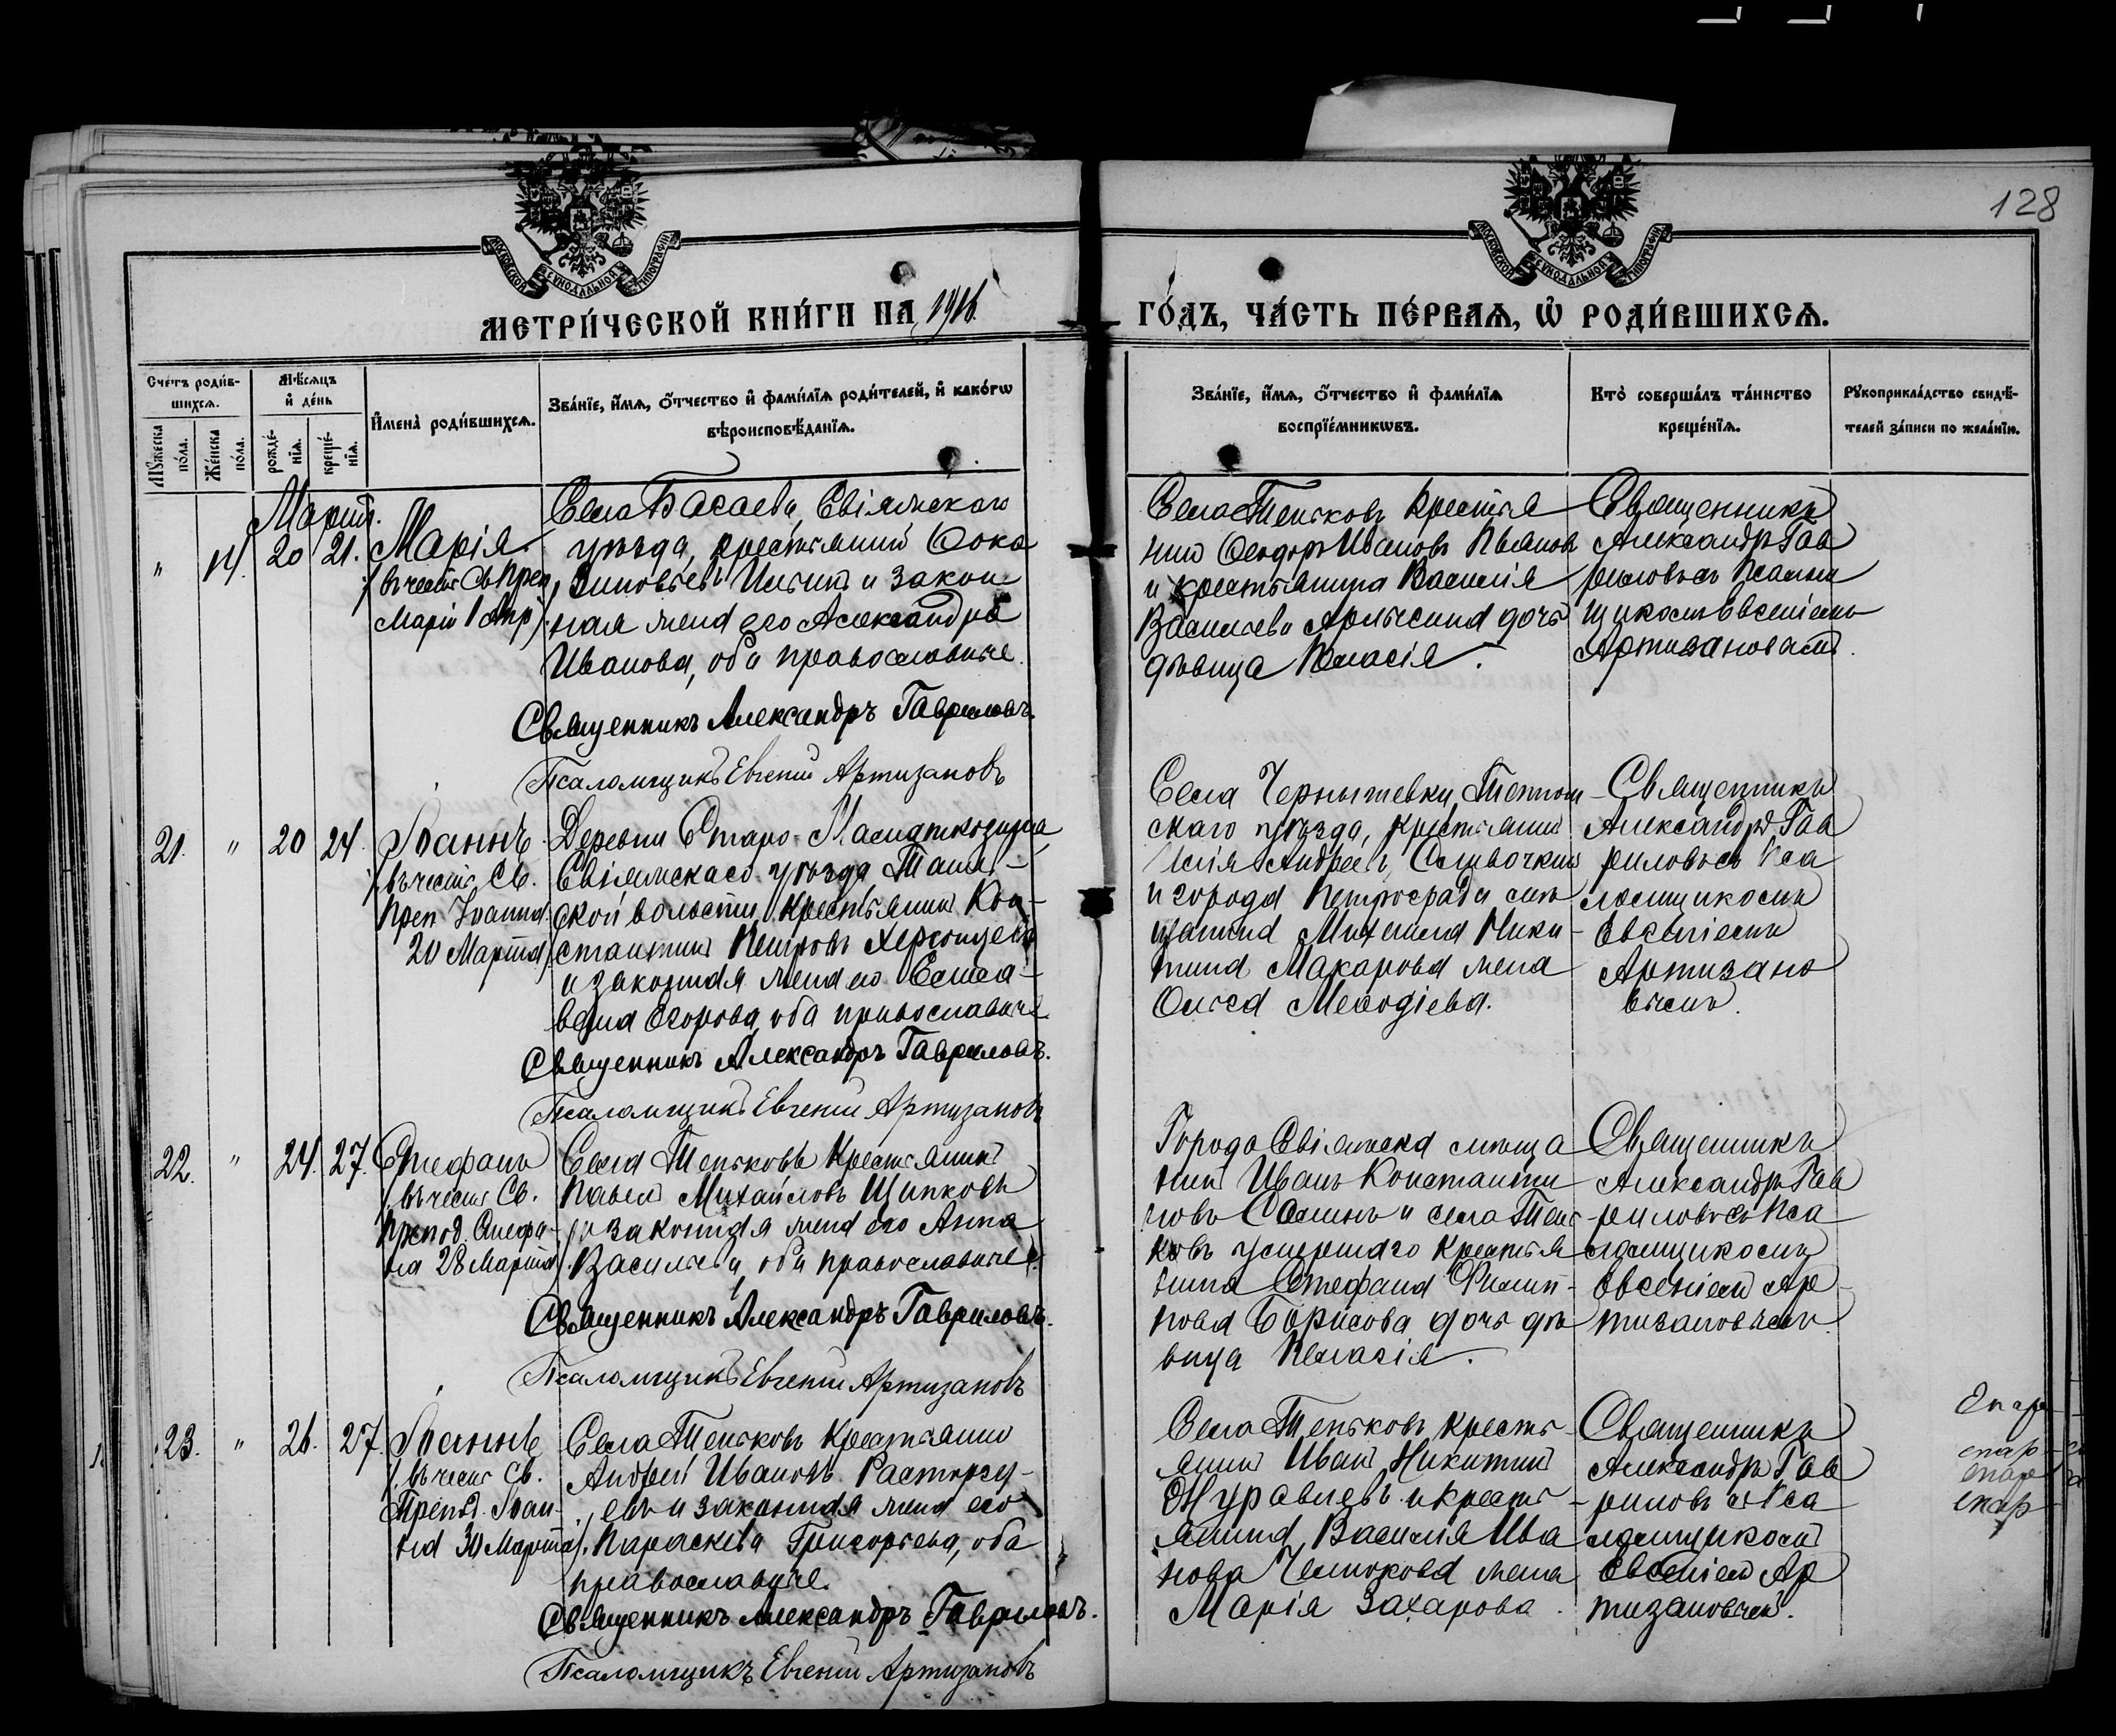 128
МОСКОВСКОЙ СѴНОДАЛЬНОЙ ТИПОГРАФІИ
МОСКОВСКОЙ СѴНОДАЛЬНОЙ ТИПОГРАФІИ
МЕТРИ́ЧЕСКОЙ КНИ́ГИ НА 1916
ГО́ДЪ, ЧА́СТЬ ПЕ́РВАѦ, Ѽ РОДИ́ВШИХСѦ.
Сче́тъ роди́в-
шихсѧ.
Мꙋ́жеска по́ла.
Же́нска по́ла.
Мѣ́сѧцъ
и҆ де́нь
рожде́-
нїѧ.
креще́-
нїѧ.
И҆мена̀ роди́вшихсѧ.
Зва́нїе, и҆́мѧ, ѻ҆́тчество и҆ фами́лїѧ роди́телей, и҆ како́гѡ
вѣроисповѣ́данїѧ.
Зва́нїе, и҆́мѧ, ѻ҆́тчество и҆ фами́лїѧ
воспрїе́мникѡвъ.
Кто̀ соверша́лъ та́инство
креще́нїѧ.
Рꙋкоприкла́дство свидѣ́-
телей за́писи по жела́нїю.
Мартъ.
" 14. 20 21. Марія
/въ честь Св. Преп.
Маріи 1 Апр/
Села Басаева, Свіяжскаго
уѣзда, крестьянинъ Ѳока
Зиновьевъ и закон-
ная жена его Александра
Иванова, оба православные.
Священникъ Александръ Гавриловъ.
Псаломщикъ Евгеній Артизановъ
Села Теньковъ крестья
нинъ Ѳеодоръ Ивановъ Пьянов
и крестьянина Василія
Васильева дочь
дѣвица Пелагія.
Священникъ
Александръ Гав
риловъ съ Псалом
щикомъ Евгеніемъ
Артизановымъ.
21. " 20 24. Іоаннъ
/въ честь Св.
Преп. Іоанна
20 Марта/
Деревни Старо-
Свіяжскаго уѣзда,
ской волости, крестьянинъ Кон-
стантинъ Петровъ
и законная жена его Елиза-
вета Егорова, оба православные
Священникъ Александръ Гавриловъ.
Псаломщикъ Евгеній Артизановъ
Села Чернышевки,
скаго уѣзда, крестьянинъ
Илія Андреевъ
и города Петрограда мѣ
щанина Михаила Ники-
тина Макарова жена
Ольга Меѳодіева.
Священникъ
Александръ Гав
риловъ съ Пса
ломщикомъ
Евгеніемъ
Артизано
вымъ.
22. " 24. 27. Стефанъ
/въ честь Св.
Препод. Стефа-
на 28 Марта/
Села Теньковъ крестьянинъ
Павелъ Михайловъ Щипковъ
и законная жена его Анна
Васильева, оба православные.
Священникъ Александръ Гавриловъ.
Псаломщикъ Евгеній Артизановъ
Города Свіяжска мѣща
нинъ Иванъ Константи
новъ и села Тень-
ковъ умершаго крестья
нина Стефана Филип-
пова Борисова дочь дѣ
вица Пелагія.
Священникъ
Александръ Гав
риловъ съ Пса
ломщикомъ
Евгеніемъ Ар
тизановымъ.
23. " 26. 27. Іоаннъ
/въ честь Св.
Препод. Іоан-
на 30 Марта/
Села Теньковъ крестьянинъ
Андрей Ивановъ Расторгу-
евъ и законная жена его
Параскева Григорьева, оба
православные.
Священникъ Александръ Гавриловъ.
Псаломщикъ Евгеній Артизановъ
Села Теньковъ кресть-
янинъ Иванъ Никитинъ
Журавлевъ и кресть-
янина Василія Ива
нова жена
Марія Захарова.
Священникъ
Александръ Гав
риловъ съ Пса
ломщикомъ
Евгеніемъ Ар
тизановымъ.